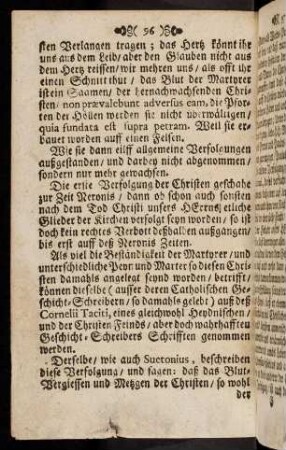 96
sten Verlangen tragen; das Hertz könnt ihr
uns aus dem Leib/ aber den Glauben nicht aus
dem Hertz reissen/ wir mehren uns/ als offt ihr
einen Schnitt thut/ das Blut der Martyrer
ist ein Saamen/ der hernachwachsenden Chri-
sten/ non prævalebunt adversus eam, die Pfor-
ten der Höllen werden sie nicht überwältigen/
quia fundata est supra petram. Weil sie er-
bauet worden auff einen Felsen.
Wie sie dann eilff allgemeine Verfolgungen
außgestanden/ und darbey nicht abgenommen/
sondern nur mehr gewachsen.
Die erste Verfolgung der Christen geschahe
zur Zeit Neronis/ dann ob schon auch sonsten
nach dem Tod Christi unsers HErrns/ etliche
Glieder der Kirchen verfolgt seyn worden/ so ist
doch kein rechtes Verbott deßhalben außgangen/
bis erst auff deß Neronis Zeiten.
Als viel die Beständigkeit der Martyrer/ und
unterschiedliche Peyn und Marter so diesen Chri-
sten damahls angelegt seynd worden/ betrifft/
können dieselbe (ausser deren Catholischen Ge-
schicht-Schreibern/ so damahls gelebt) auß deß
Cornelii Taciti, eines gleichwohl Heydnischen/
und der Christen Feinds/ aber doch warhafften
Geschicht-Schreibers Schrifften genommen
werden.
Derselbe/ wie auch Suetonius, beschreiben
diese Verfolgung/ und sagen: daß das Blut-
Vergiessen und Metzgen der Christen/ so wohl
der